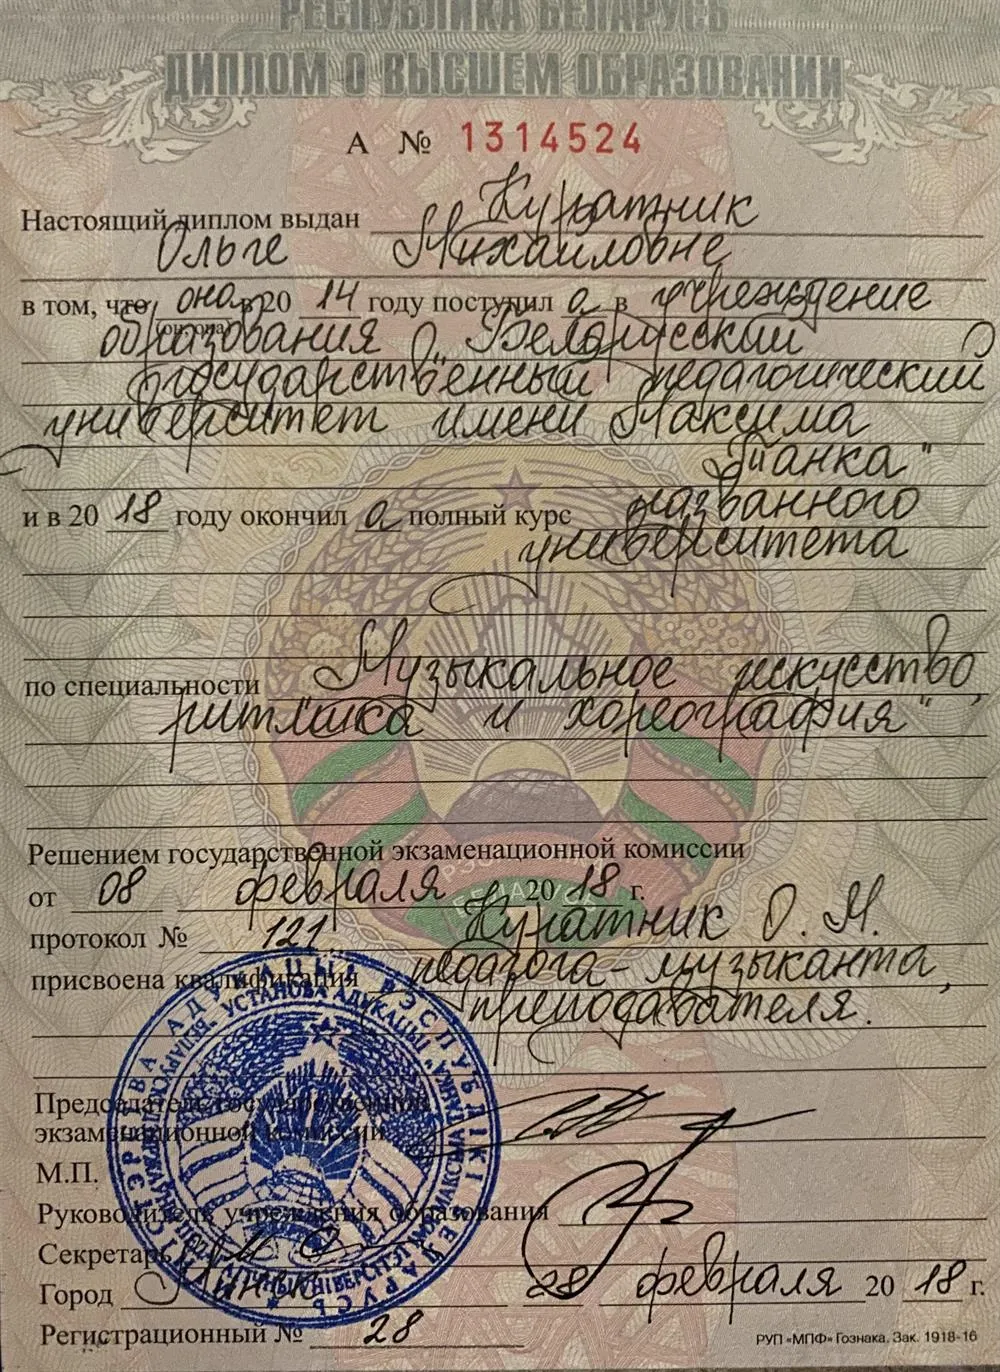 РЕСПУБЛИКА БЕЛАРУСЬ
ДИПЛОМ О ВЫСШЕМ ОБРАЗОВАНИИ
А № 1314524
Настоящий диплом выдан Куратник
Ольге Михайловне
в том, что она в 20 14 году поступил а в учреждение
(он, она)
образования „Белорусский
государственный педагогический
университет имени Максима
Танка"
и в 20 18 году окончил а полный курс названного
университета
по специальности „Музыкальное искусство,
ритмика и хореография"
Решением государственной экзаменационной комиссии
от 08 февраля 20 18 г.
протокол № 121 Куратник О. М.
присвоена квалификация педагога-музыканта,
преподавателя.
Председатель государственной
экзаменационной комиссии
М.П.
Руководитель учреждения образования
Секретарь
Город Минск 28 февраля 20 18 г.
Регистрационный № 28
РУП «МПФ» Гознака. Зак. 1918-16